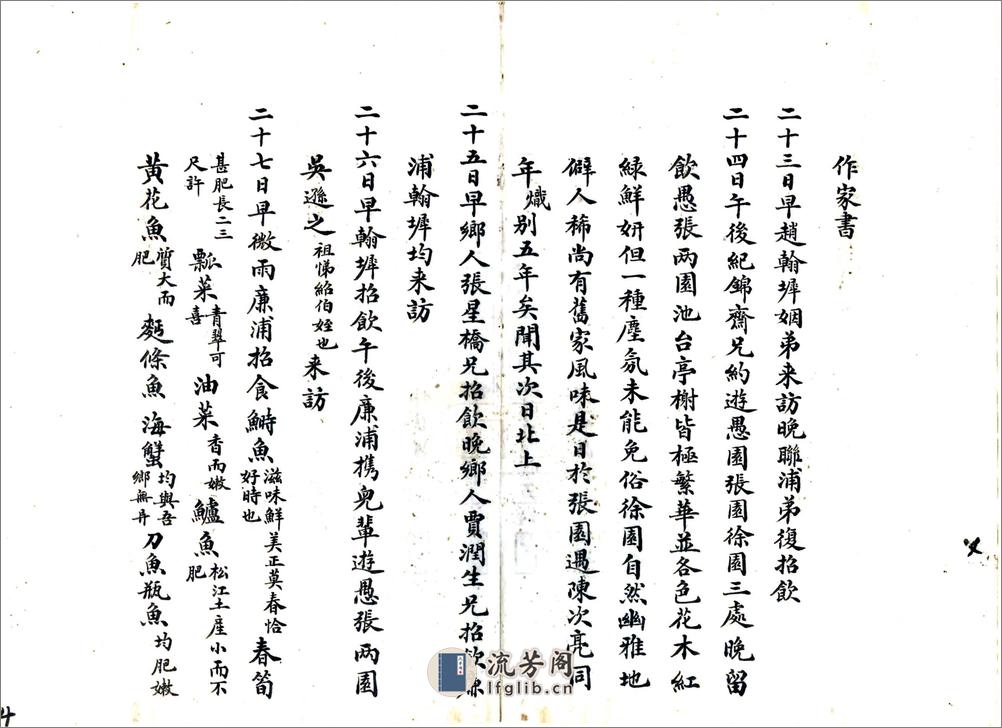 作家書
二十三日早趙翰墀姻弟来訪晚聯浦弟復招飲
二十四日午後紀錦齋兄約遊愚園張園徐園三處晚留
飲愚張兩園池台亭榭皆極繁華並各色花木紅
綠鮮妍但一種塵氛未能免俗徐園自然幽雅地
僻人稀尚有舊家風味是日於張園遇陳次亮同
年熾别五年矣聞其次日北上
二十五日早鄉人張星橋兄招飲晚鄉人賈潤生兄招飲
浦翰墀均来訪
二十六日早翰墀招飲午後廉浦携兒輩遊愚張兩園
吳遜之祖悌紹伯姪也来訪
二十七日早微雨廉浦招食鰣魚滋味鮮美正莫春恰好時也春筍
甚肥長二三尺許瓢菜青翠可喜油菜香而嫩鱸魚松江土産小而不肥
黃花魚質大而肥麫條魚海蟹均與吾鄉無异刀魚瓶魚均肥嫩
流芳阁
lfglib.cn
4